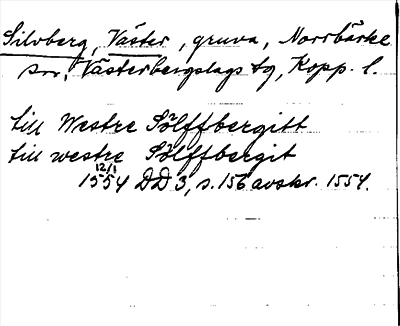 Silvberg, Väster, gruva, Norrbärke
sn, Västerbergslags tg, Kopp. l.
till Westre Sölffbergitt
till westre Sölffbergit
12/1
1554 DD 3, s. 156 avskr. 1554.